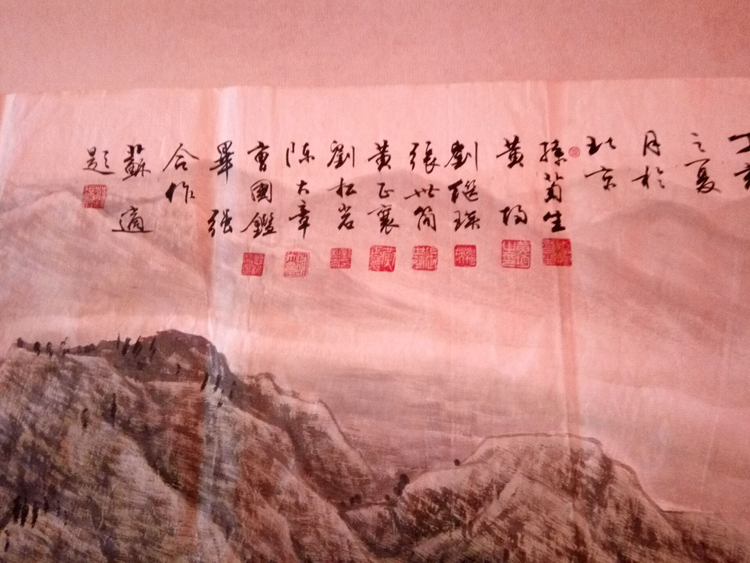 之夏
月於
北京
孫菊生
黄均
劉繼瑛
張世簡
黄正襄
劉松岩
陈大章
曹國鑑
畢強
合作
蘇適
题